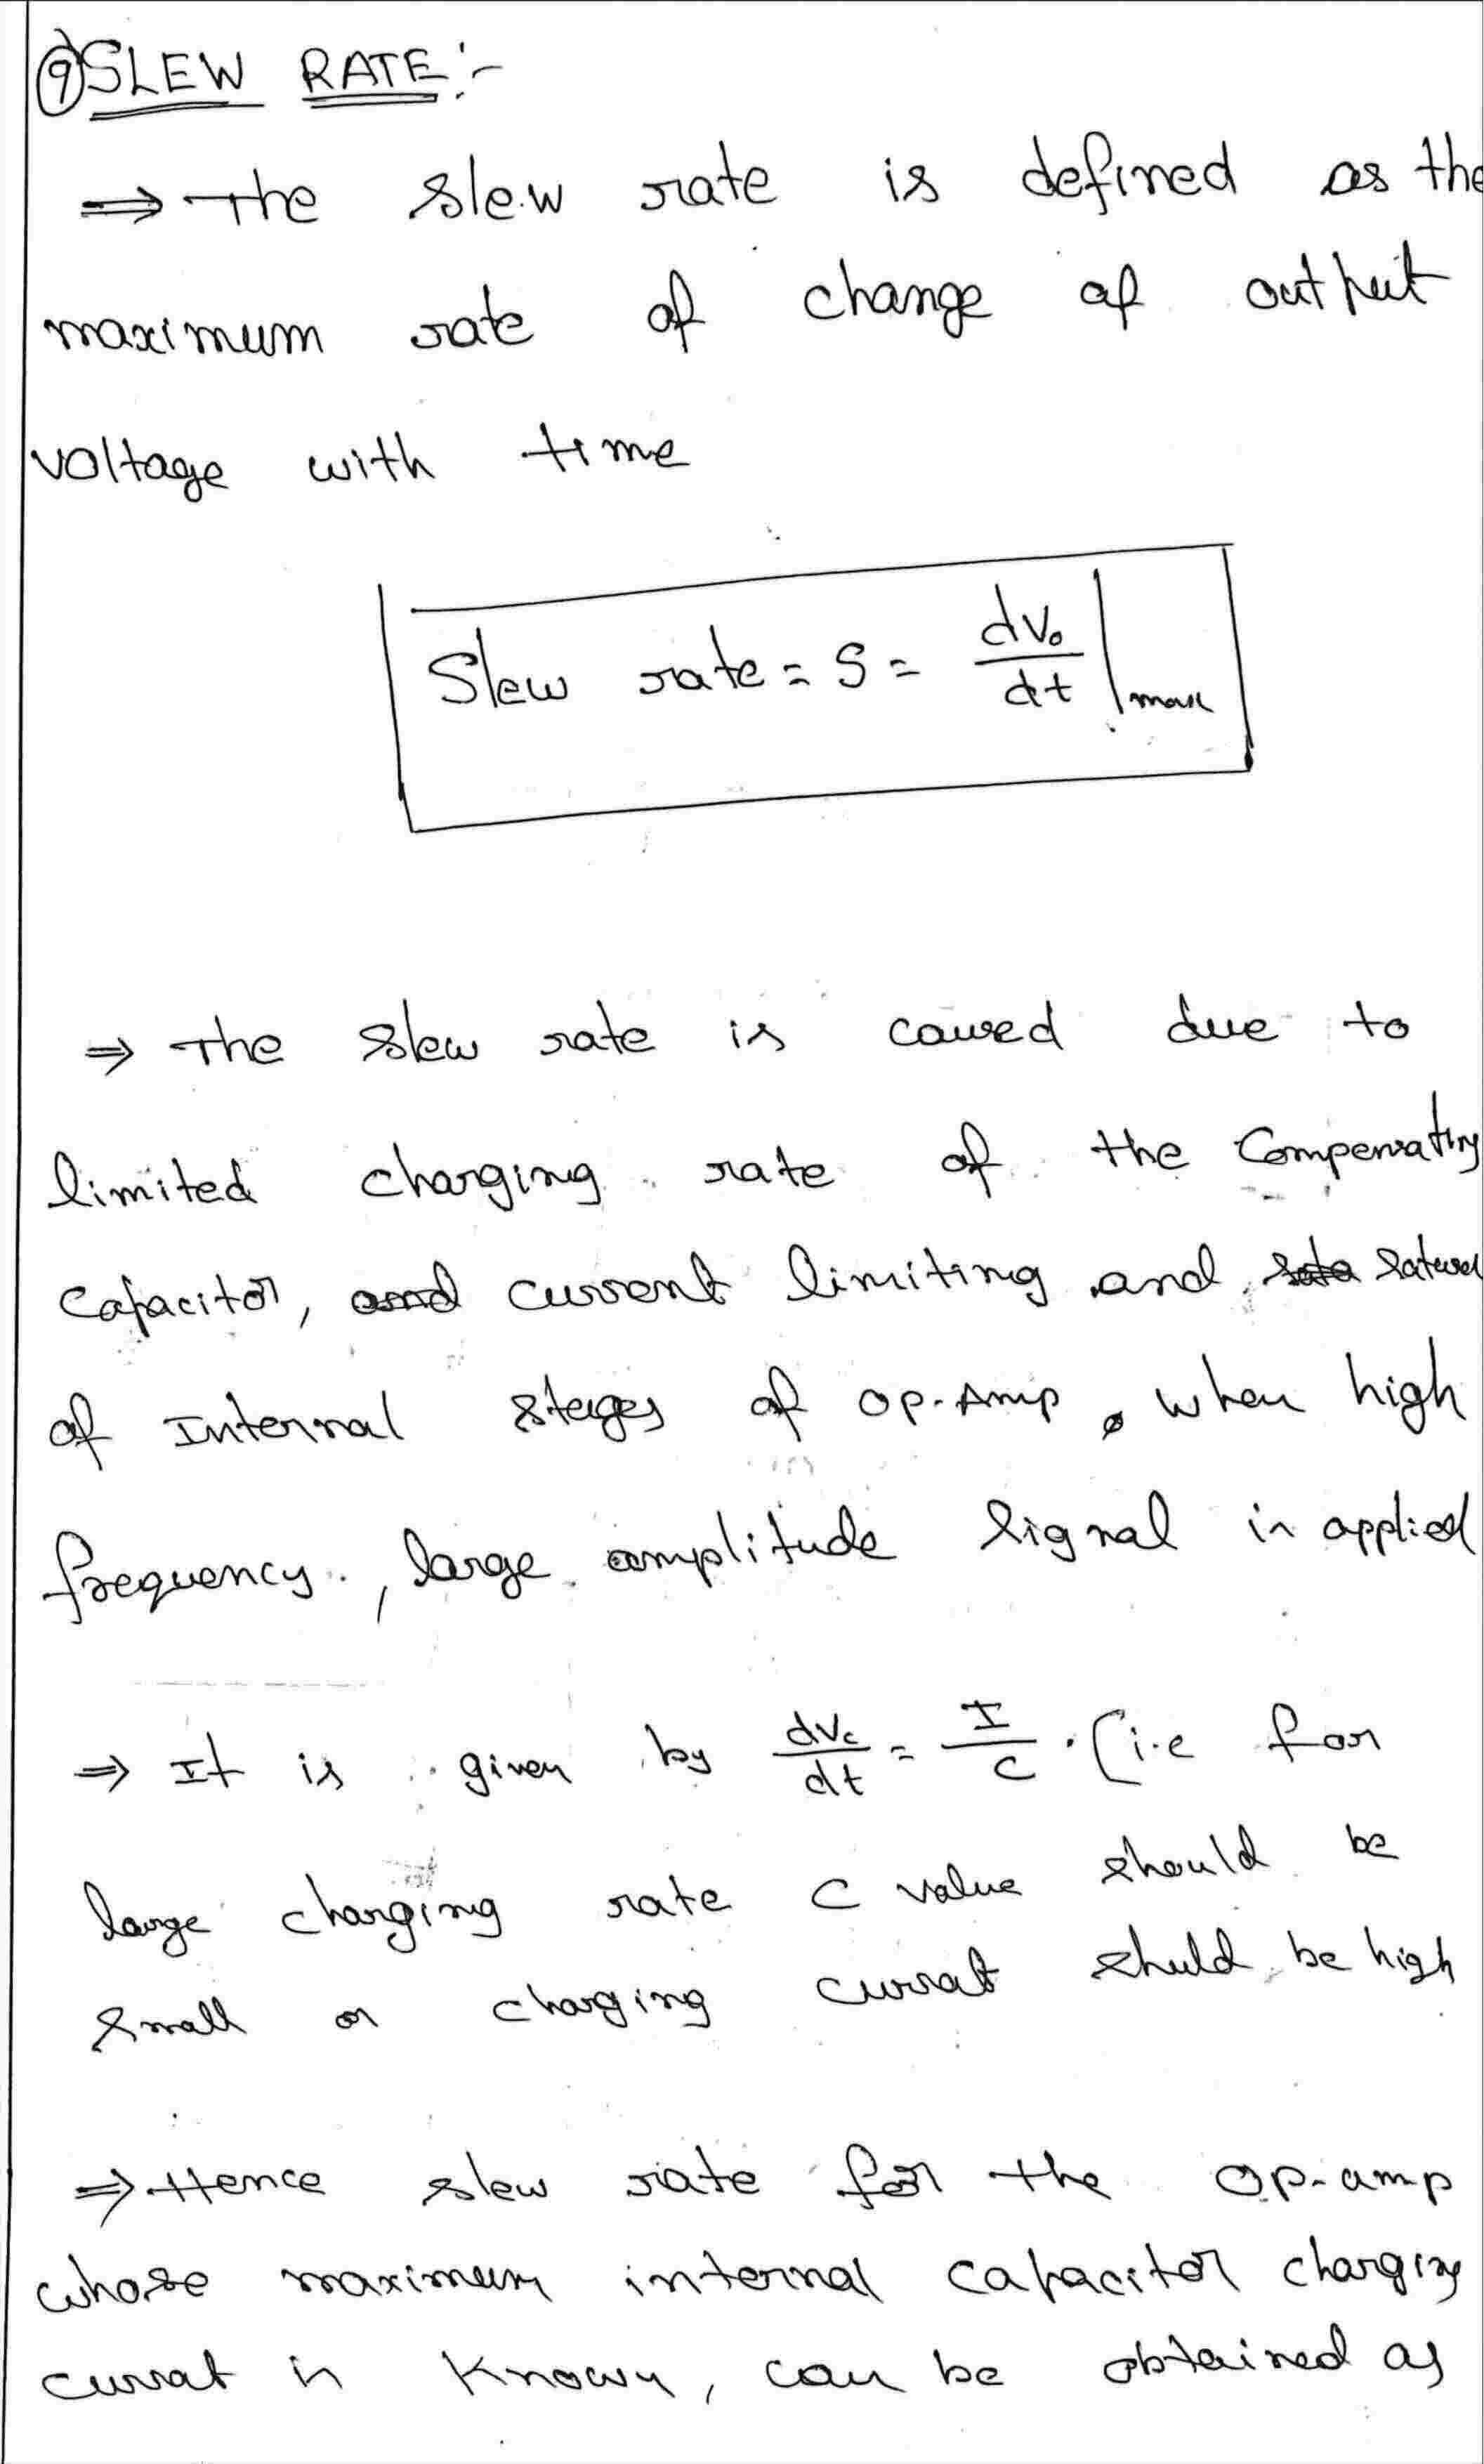 9) SLEW RATE :-
⇒ The slew rate is defined as the
maximum rate of change of output
voltage with time
Slew rate = S = dVo/dt |max
⇒ The slew rate is caused due to
limited charging rate of the Compensating
capacitor, and current limiting and satura
of Internal stages of op-Amp, when high
frequency, large amplitude signal is applied
⇒ It is given by dVc/dt = I/C . (i.e for
large charging rate C value should be
small or charging currat shuld be high
⇒ Hence slew rate for the op-amp
whose maximum internal capacitor charging
currat is known, can be obtained as